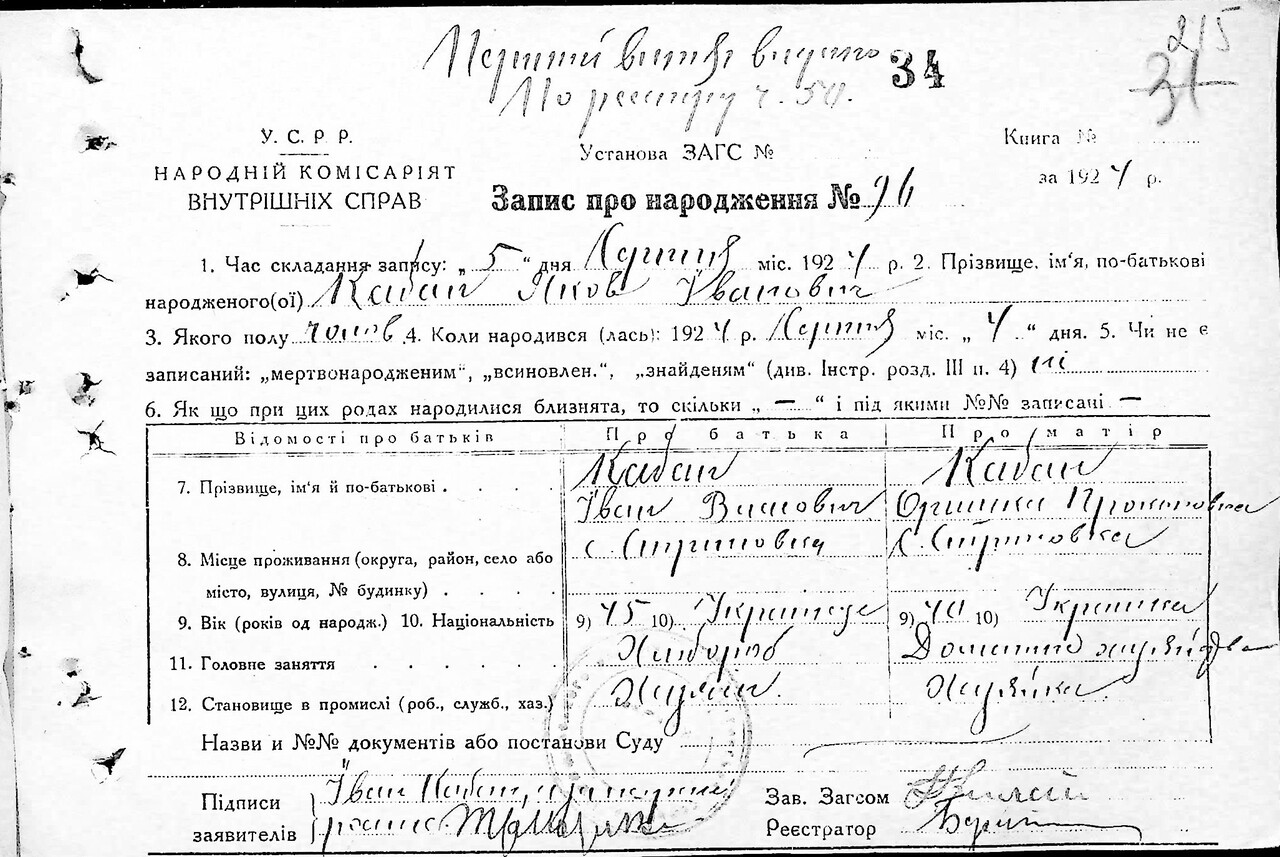 Перший витяг видано 34 215
По реєстру ч. 50. 31
У. С. Р. Р.
Установа ЗАГС №
Книга №
НАРОДНІЙ КОМІСАРІЯТ
ВНУТРІШНІХ СПРАВ
за 1924 р.
Запис про народження №
1. Час складання запису: „5“ дня Серпня міс. 1924 р. 2. Прізвище, ім'я, по-батькові
народженого(ої) Кабан Яков Іванович
3. Якого полу чолов 4. Коли народився (лась): 1924 р. Серпня міс. „4“ дня. 5. Чи не є
записаний: „мертвонародженим“, „всиновлен.“, „знайденям“ (див. Інстр. розд. III п. 4) ні
6. Як що при цих родах народилися близнята, то скільки „—“ і під якими №№ записані —
Відомості про батьків Про батька Про матір
7. Прізвище, ім'я й по-батькові . . . . Кабан Кабан
Іван Оришка
8. Місце проживання (округа, район, село або с. с.
місто, вулиця, № будинку) . . . .
9. Вік (років од народж.) 10. Національність 9) 45 10) Українець 9) 40 10) Українка
11. Головне заняття . . . . . . Хлібороб Домашнє
12. Становище в промислі (роб., служб., хаз.) Хазяїн. Хазяйка.
Назви и №№ документів або постанови Суду
Підписи Іван Кабан, Зав. Загсом
заявителів Реєстратор